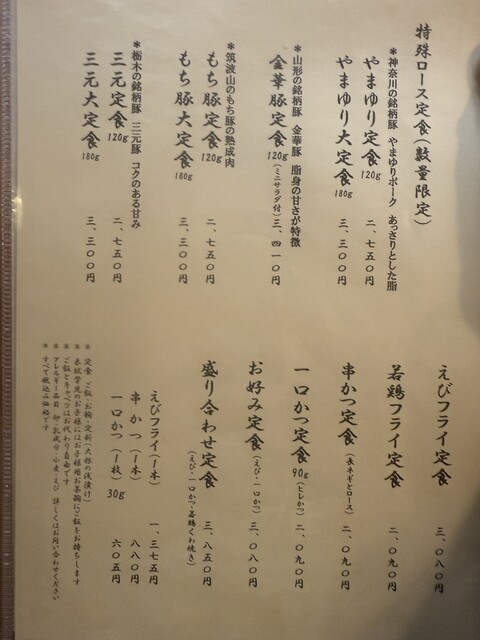 特殊ロース定食(数量限定)
*神奈川の銘柄豚 やまゆりポーク あっさりとした脂
やまゆり定食 120g 二、七五〇円
やまゆり大定食 180g 三、三〇〇円
*山形の銘柄豚 金華豚 脂身の甘さが特徴
金華豚定食 120g (ミニサラダ付) 三、四一〇円
*筑波山のもち豚の熟成肉
もち豚定食 120g 二、七五〇円
もち豚大定食 180g 三、三〇〇円
*栃木の銘柄豚 三元豚 コクのある甘み
三元定食 120g 二、七五〇円
三元大定食 180g 三、三〇〇円
えびフライ定食 三、〇八〇円
若鶏フライ定食 二、〇九〇円
串かつ定食 (長ネギとロース) 二、〇九〇円
一口かつ定食 90g (ヒレかつ) 二、〇九〇円
お好み定食 (えび・一口かつ) 三、〇八〇円
盛り合わせ定食 (えび・一口かつ・若鶏くわ焼き) 三、八五〇円
えびフライ(1本) 一、三七五円
串かつ (1本) 八八〇円
一口かつ (1枚) 30g 六〇五円
*定食 ご飯・お椀・定新(大根の浅漬け)
*未就学児のお子様にはお子様用お茶碗にご飯をお持ちします
*ご飯とキャベツはお代わり自由です
*アレルギー品目 卵・乳成分・小麦・えび 詳しくはお問い合わせください
*すべて税込み価格です